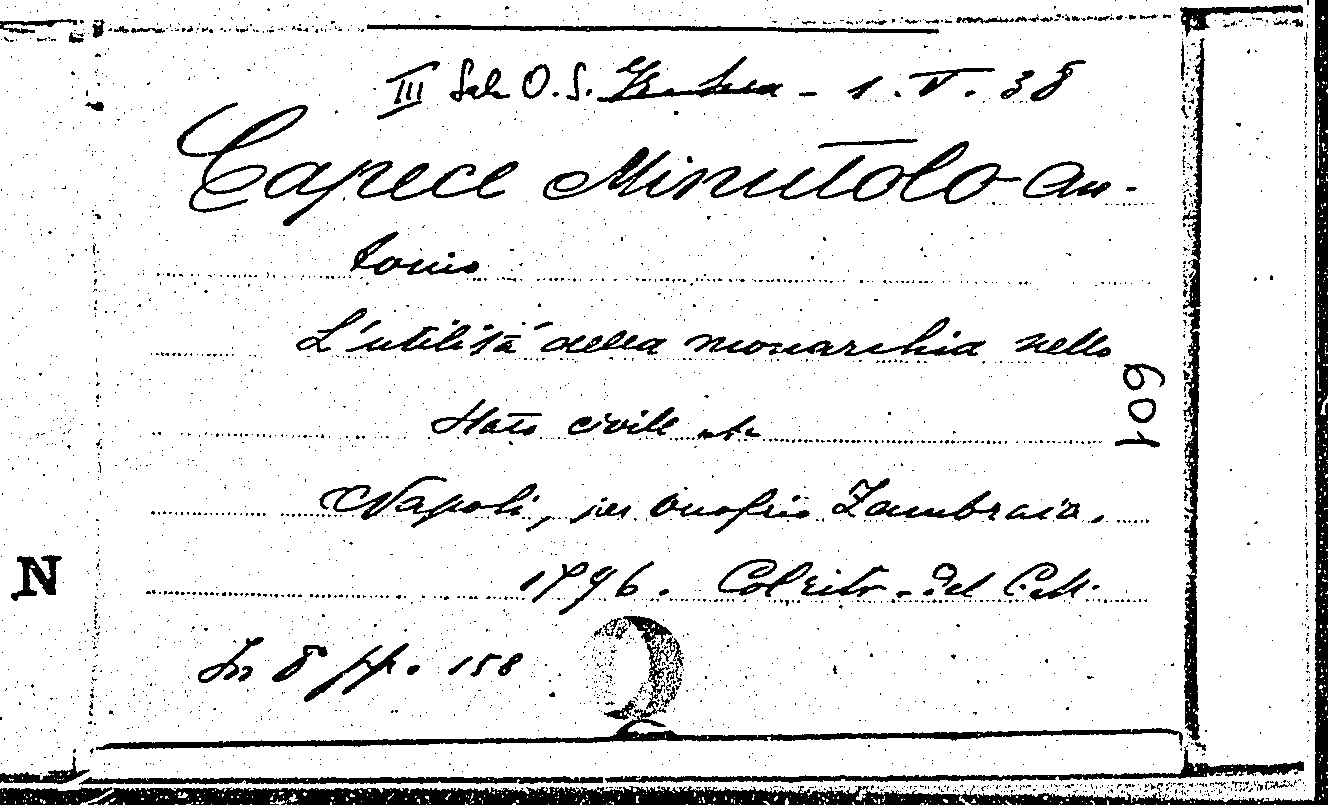 III Sal. O. S. - 1. V. 38
Capece Minutolo An-
tonio
L'utilità della monarchia nello
Stato civile etc
Napoli, per Onofrio Zambraia.
1796. Col ritr. del
In 8 pp. 158
109
N